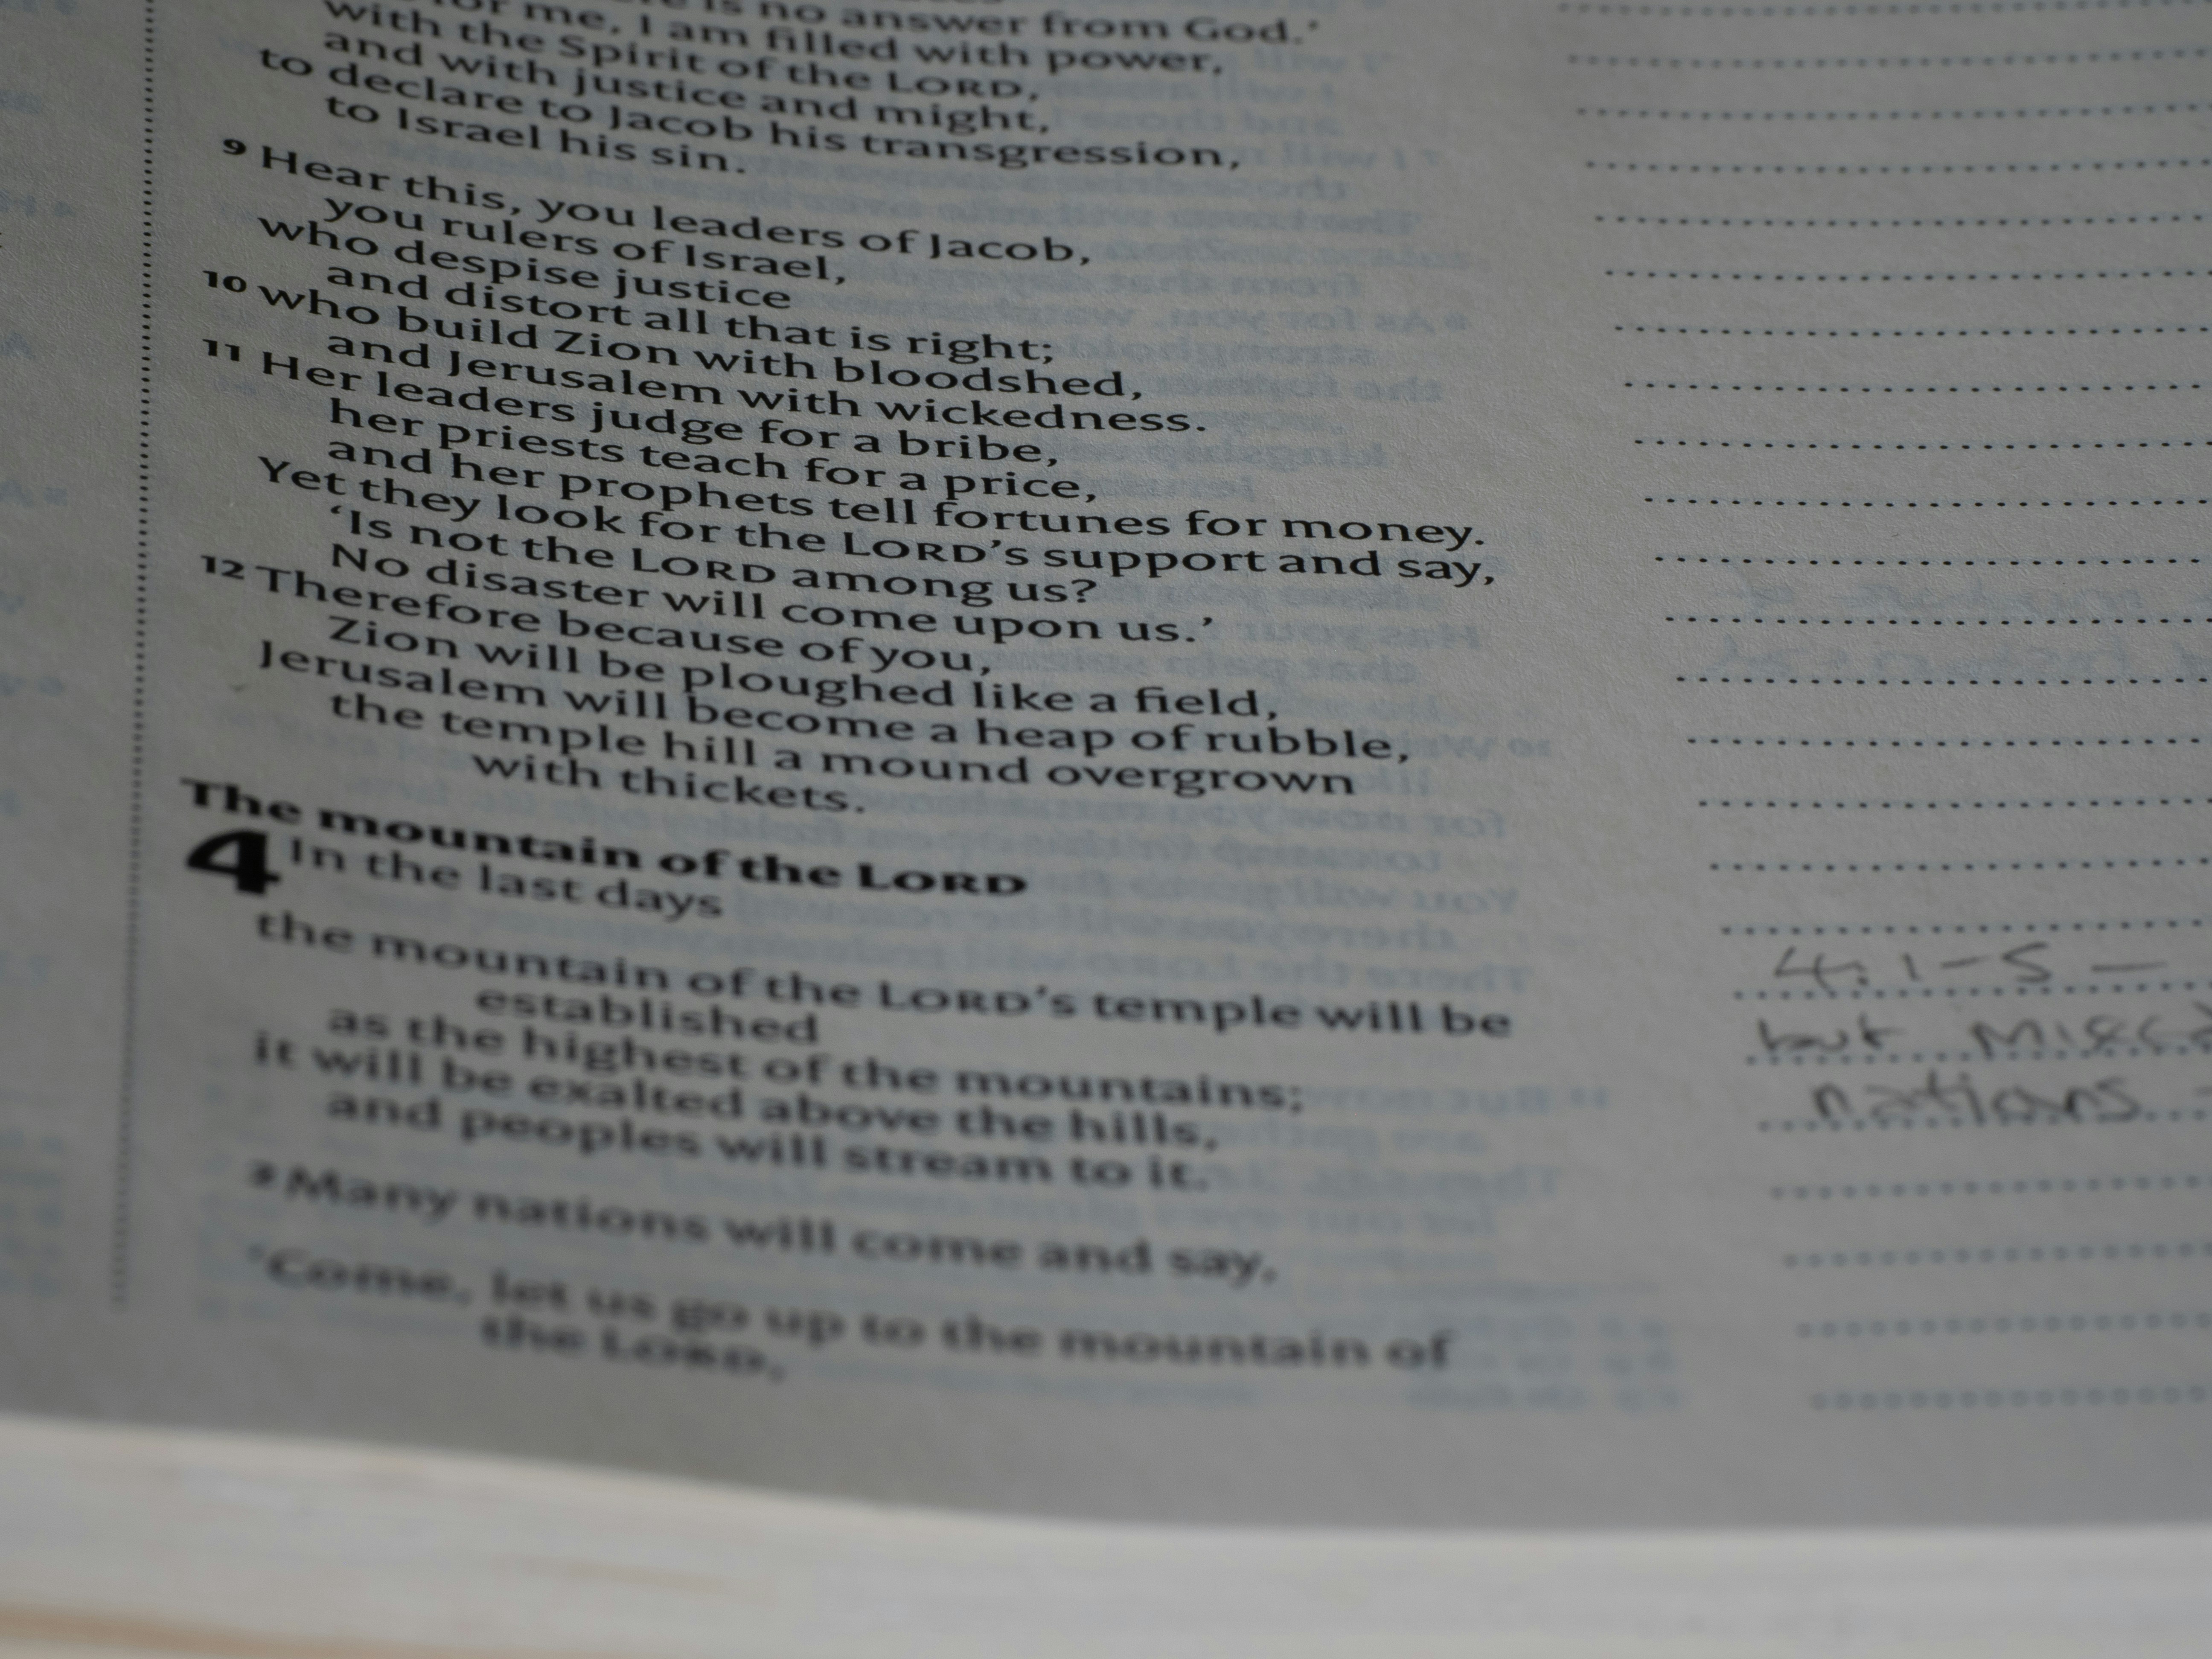 is no answer from God.’
for me, I am filled with power,
with the Spirit of the LORD,
and with justice and might,
to declare to Jacob his transgression,
to Israel his sin.
9 Hear this, you leaders of Jacob,
you rulers of Israel,
who despise justice
and distort all that is right;
10 who build Zion with bloodshed,
and Jerusalem with wickedness.
11 Her leaders judge for a bribe,
her priests teach for a price,
and her prophets tell fortunes for money.
Yet they look for the LORD’s support and say,
‘Is not the LORD among us?
No disaster will come upon us.’
12 Therefore because of you,
Zion will be ploughed like a field,
Jerusalem will become a heap of rubble,
the temple hill a mound overgrown
with thickets.
The mountain of the LORD
4 In the last days
the mountain of the LORD’s temple will be
established
as the highest of the mountains;
it will be exalted above the hills,
and peoples will stream to it.
2 Many nations will come and say,
‘Come, let us go up to the mountain of
the LORD,
4:1-5 —
but
nations